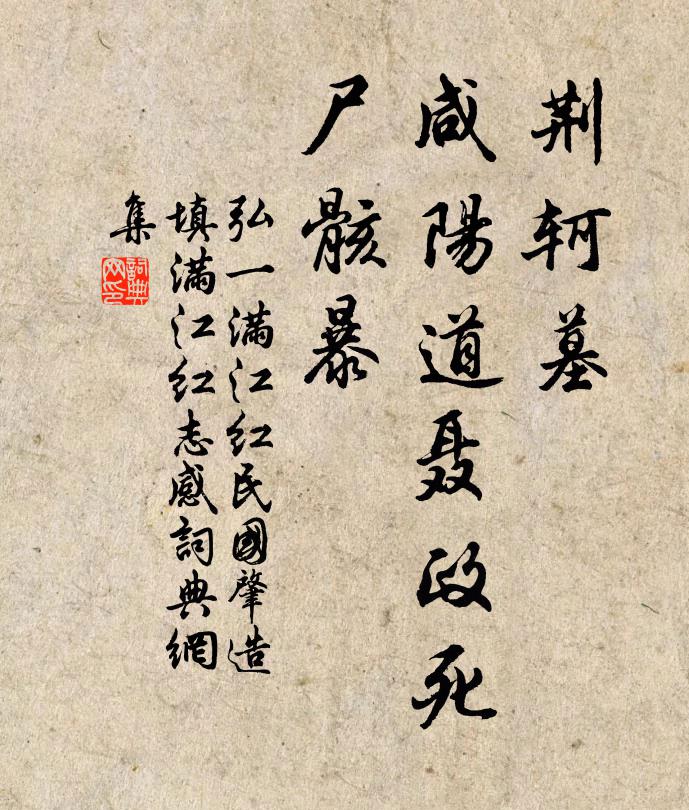 荆轲墓
咸陽道聂政死
尸骸暴
弘一滿江红民國肇造
填滿江红志感詞典網
集
詞典
网印